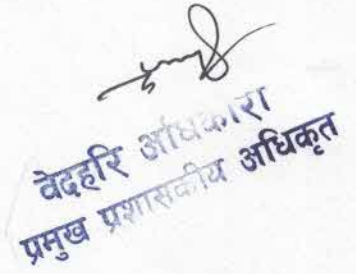 वेदहरि अधिकारी
प्रमुख प्रशासकीय अधिकृत